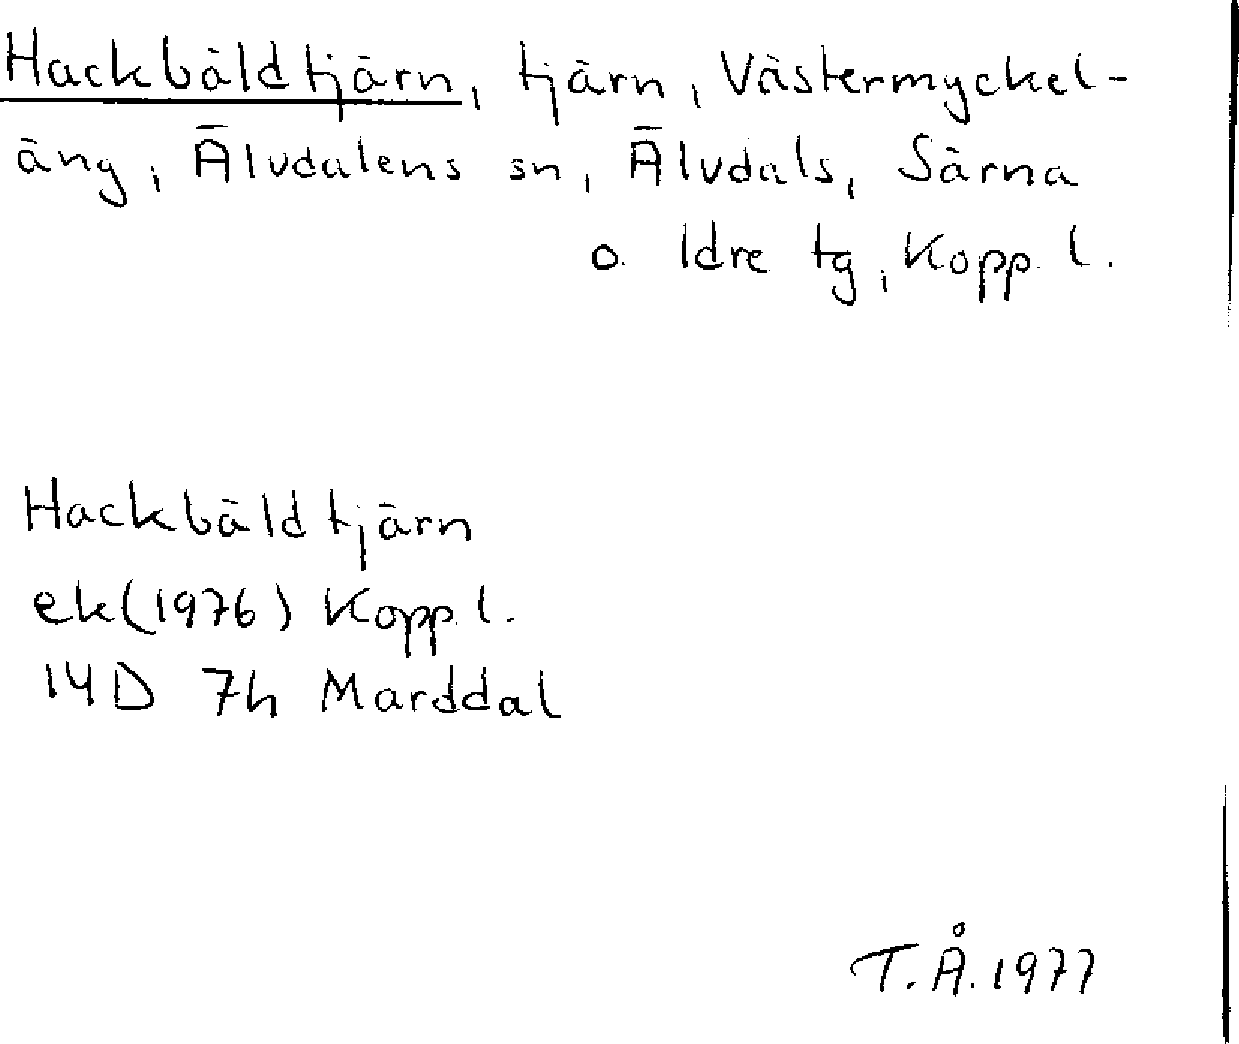 Hackbäldtjärn, tjärn, Västermyckel-
äng, Älvdalens sn, Älvdals, Särna
o. Idre tg, Kopp. l.
Hackbäldtjärn
ek(1976) Kopp. l.
14D 7h Marddal
T.Å.1977